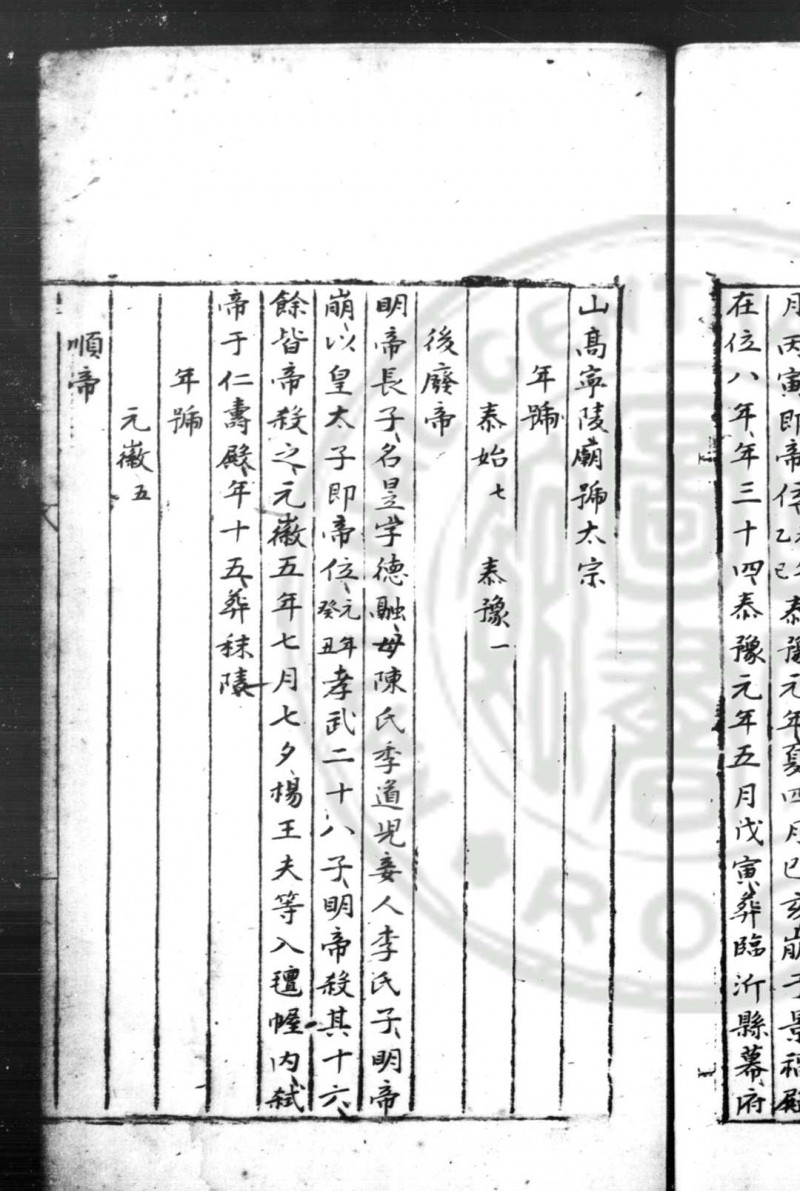 月丙寅即帝位乙巳泰豫元年夏四月己亥崩于景福殿
在位八年年三十四泰豫元年五月戊寅葬臨沂縣幕府
山髙寧陵廟號太宗
年號
泰始七 泰豫一
後廢帝
明帝長子名昱字德融母陳氏李道児妾人李氏子明帝
崩以皇太子即帝位元年癸丑孝武二十八子明帝殺其十六
餘皆帝殺之元徽五年七月七夕楊王夫等入氊幄内弑
帝于仁壽殿年十五葬秣陵
年號
元徽五
順帝